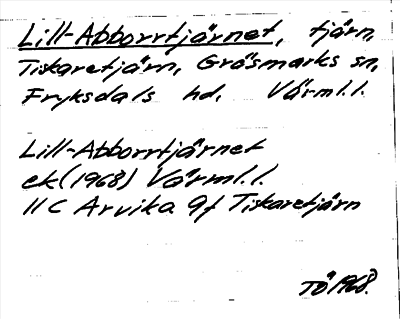 Lill-Abborrtjärnet, tjärn,
Tiskaretjärn, Gräsmarks sn,
Fryksdals hd. Värml.l.
Lill-Abborrtjärnet
ek(1968) Värml.l.
11 C Arvika 9f Tiskaretjärn
TÖ 1968.